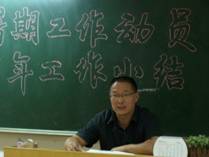 暑期工作动员
年工作小结